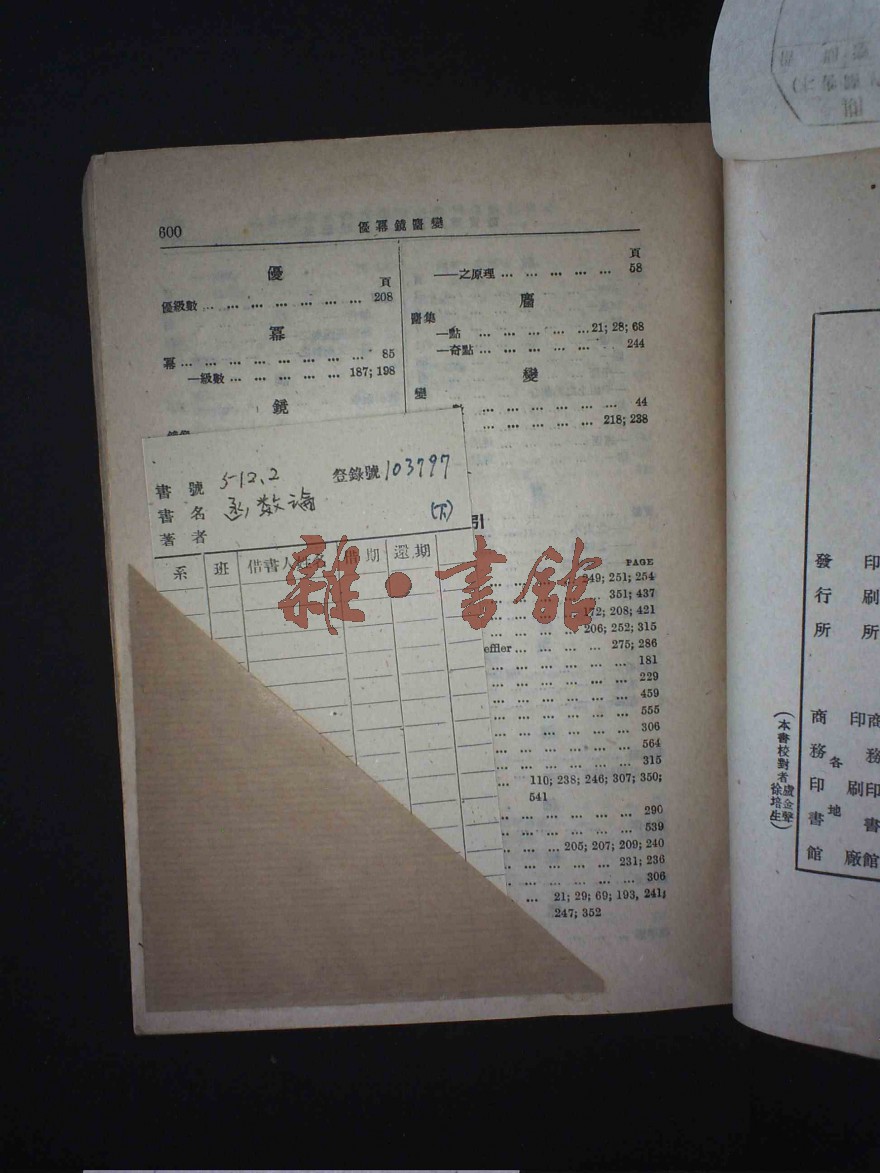 600
優冪鏡嚮變
優
頁
優級數 … … … … … … … … 208
冪
冪 … … … … … … … … … 85
—級數 … … … … … … 187; 198
鏡
頁
——之原理 … … … … … … 58
—點 … … … … … … 21; 28; 68
—奇點 … … … … … … … 244
變
變
… … … … … … … 44
… … … … … … 218; 238
書號 512.2 登錄號 103797
書名 函數論 (下)
著者
系 班 借書人姓名 借期 還期
引
PAGE
… … … … 249; 251; 254
351; 437
… … … … 172; 208; 421
… … … … 206; 252; 315
effler … … … … 275; 286
… … … … … … … 181
… … … … … … … 229
… … … … … … … 459
… … … … … … … 555
… … … … … … … 306
… … … … … … … 564
… … … … … … … 315
… 110; 238; 246; 307; 350;
541
… … … … … … … 290
… … … … … … … 539
… … … 205; 207; 209; 240
… … … … … 231; 236
… … … … … … … 306
… … 21; 29; 69; 193, 241;
247; 352
雜·書館
發行所 商務印書館
印刷所 商務印書館
各地
印刷廠
(本書校對者 盧金聲 徐培生)